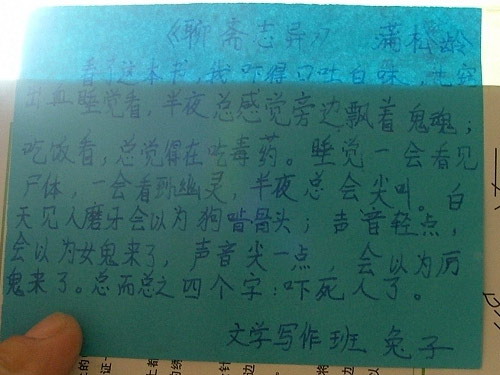 《聊斋志异》 蒲松龄
看了这本书,我吓得口吐白沫,七窍
出血睡觉看,半夜总感觉旁边飘着鬼魂;
吃饭看,总觉得在吃毒药。睡觉一会看见
尸体,一会看到幽灵,半夜总会尖叫。白
天见人磨牙会以为狗啃骨头;声音轻点,
会以为女鬼来了,声音尖一点,会以为厉
鬼来了。总而总之四个字:吓死人了。
文学写作班 兔子